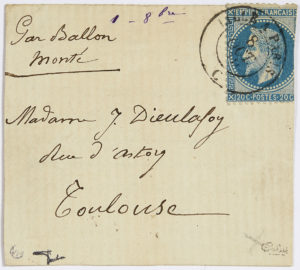 1 - 8 bre
Par Ballon
monté
EMPIRE FRANÇAIS
20C POSTES 20C
Madame J. Dieulafoy
Rue d'astorg
Toulouse